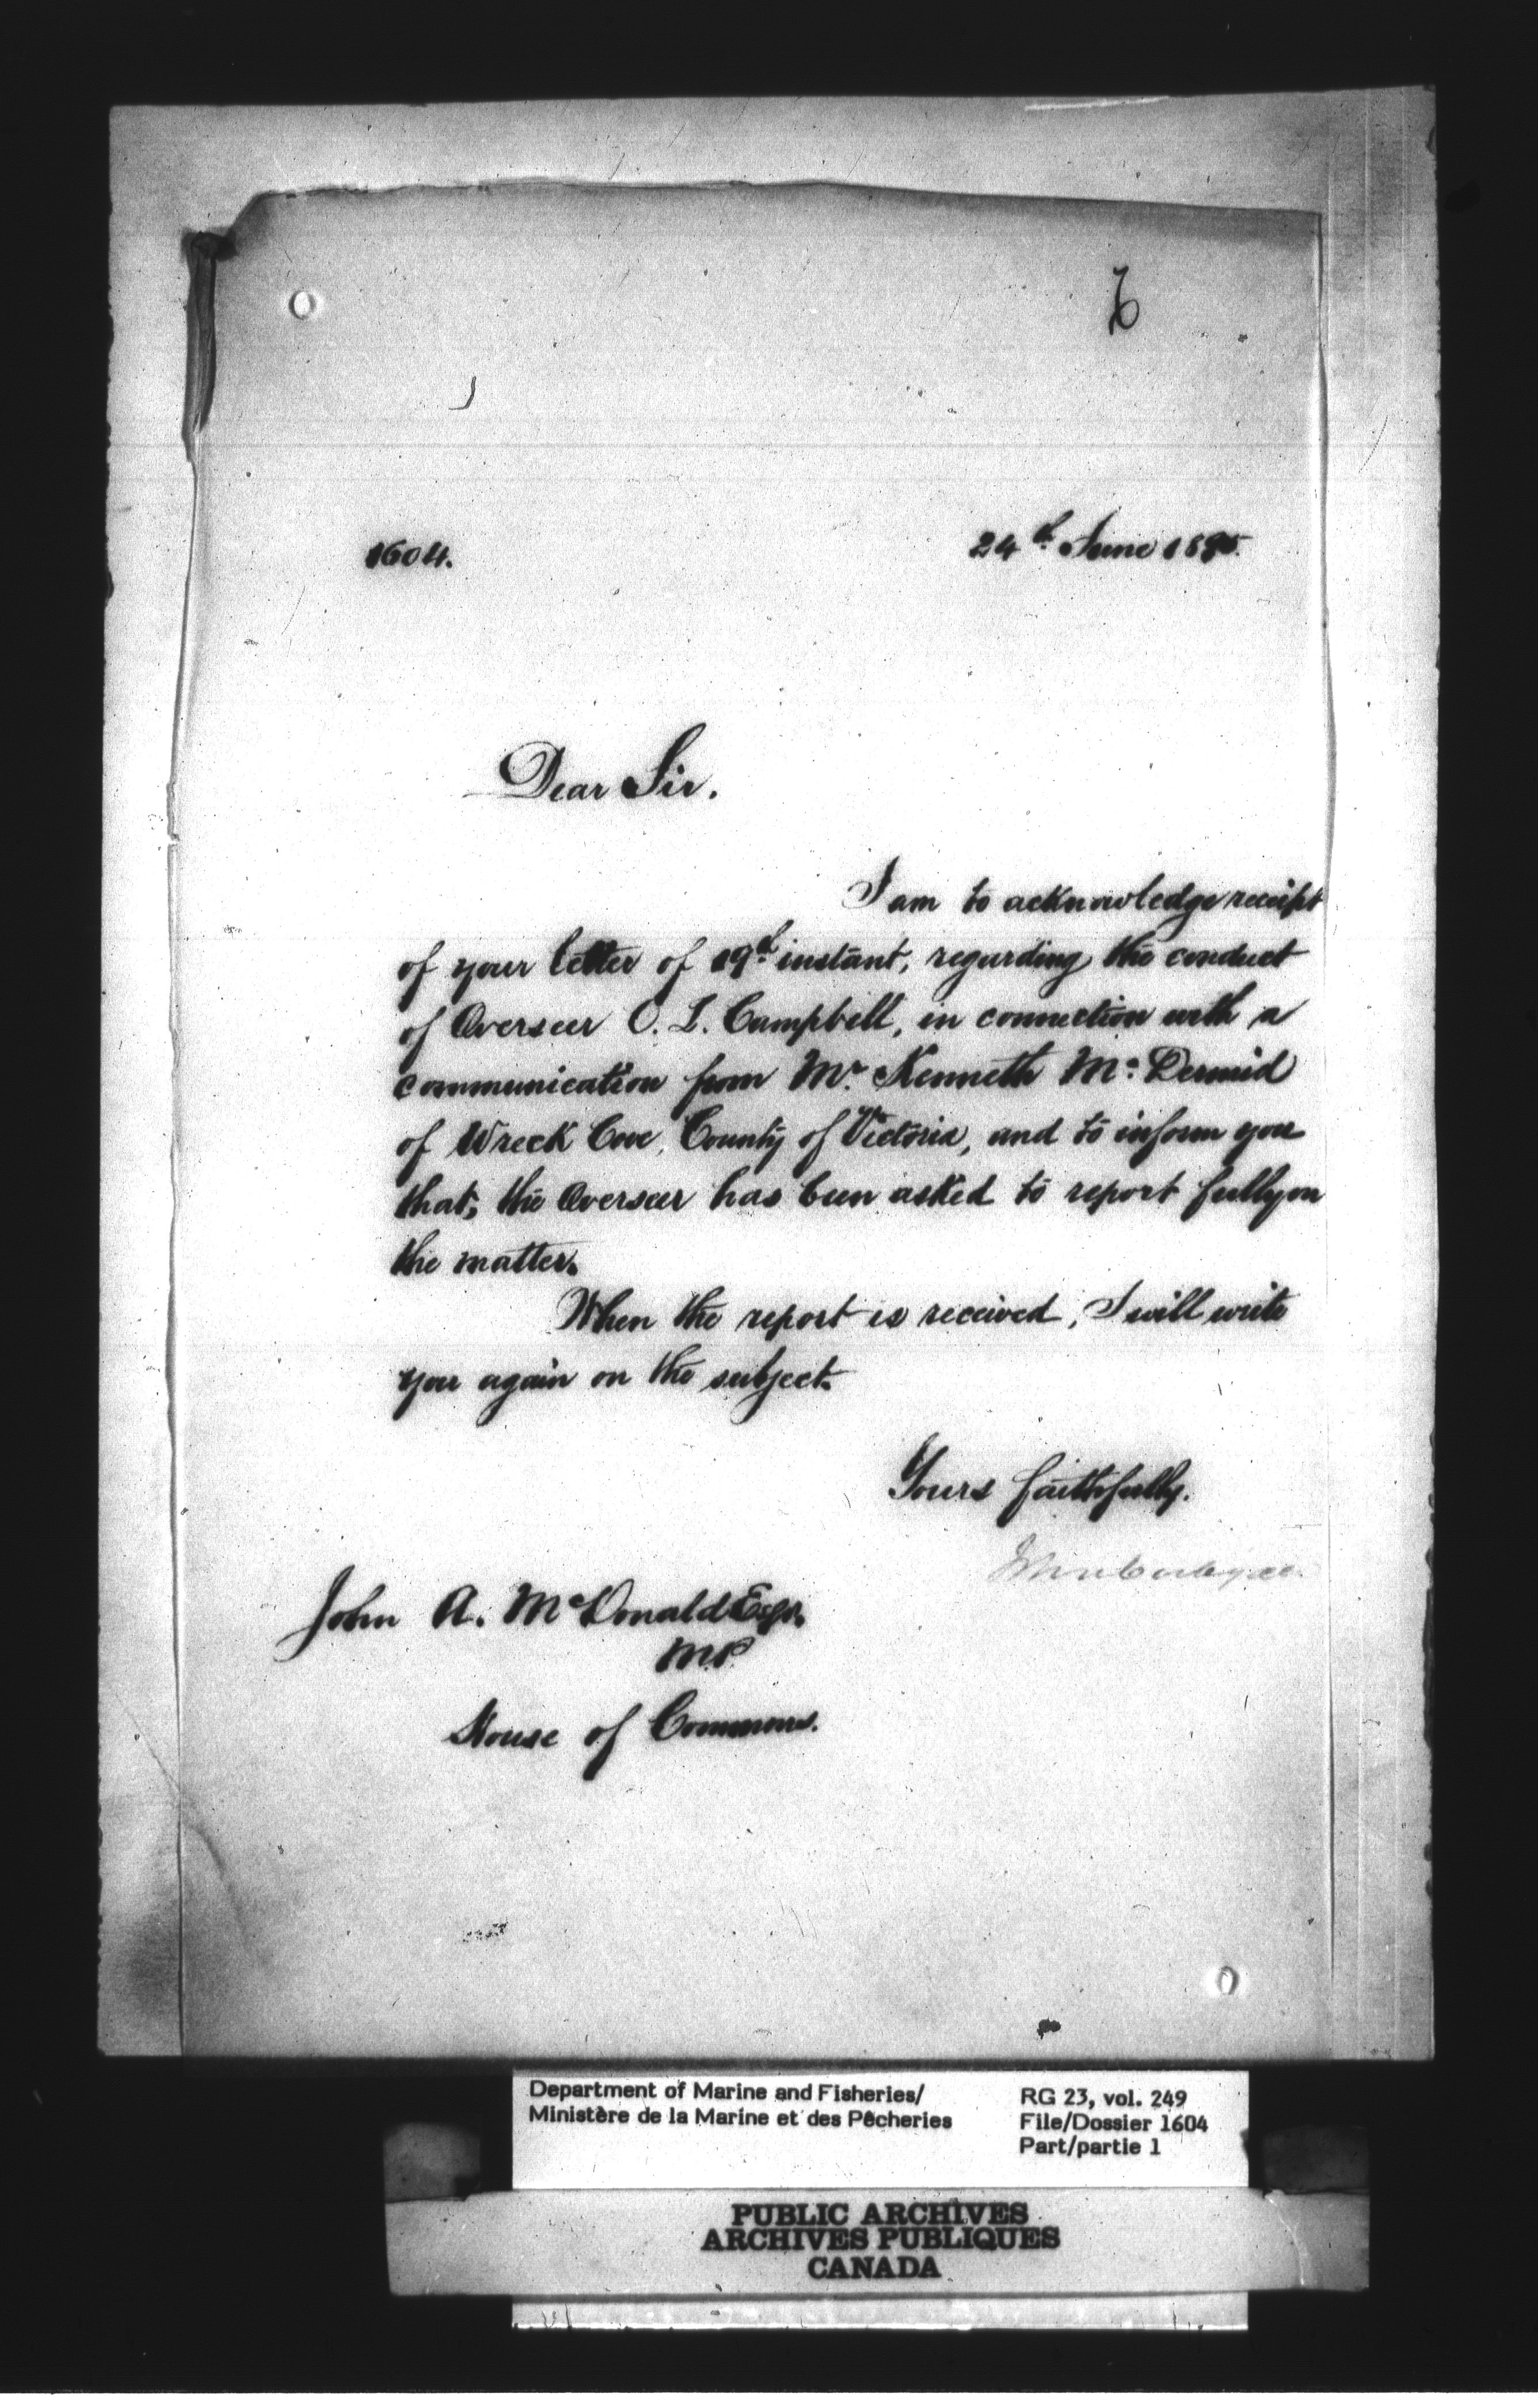 1604.
24th June 1895.
Dear Sir.
I am to acknowledge receipt
of your letter of 19th instant, regarding the conduct
of Overseer O. L. Campbell, in connection with a
communication from Mr. Kenneth Mc. Dermid
of Wreck Cove, County of Victoria, and to inform you
that, the Overseer has been asked to report fully on
the matter.
When the report is received, I will write
you again on the subject.
Yours faithfully.
John A. McDonald Esqr.
M.P.
House of Commons.
Department of Marine and Fisheries/
Ministère de la Marine et des Pêcheries
RG 23, vol. 249
File/Dossier 1604
Part/partie 1
PUBLIC ARCHIVES
ARCHIVES PUBLIQUES
CANADA